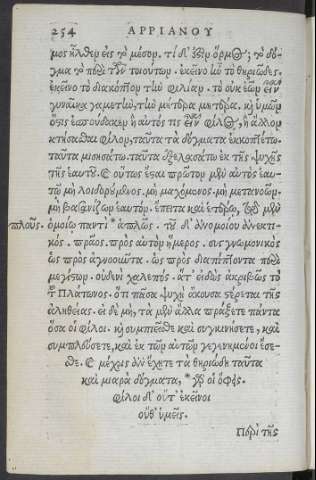 254 ΑΡΡΙΑΝΟΥ
μος ἦλθεν εἰς τὸ μέσον. τί δ' ἐστὶν ὅρμος; τὸ δόγ
μα τὸ περὶ τῶν τοιούτων. ἐκεῖνο ἦν τὸ θηριῶδες.
ἐκεῖνο τὸ διακόπτον τὴν φιλίαν. τὸ οὐκ ἐῶν εἶναι
γυναῖκα γαμετὴν, τὴν μητέρα μητέρα. καὶ ὑμῶν
ὅστις ἐσπούδακεν ἢ αὐτός τις εἶναι φίλος, ἢ ἄλλον
κτήσασθαι φίλον, ταῦτα τὰ δόγματα ἐκκοπτέτω.
ταῦτα μισησάτω. ταῦτα ἐξελασάτω ἐκ τῆς ψυχῆς
τῆς ἑαυτοῦ. καὶ οὕτως ἔσται πρῶτον μὲν αὐτὸς ἑαυ
τῷ μὴ λοιδορούμενος. μὴ μαχόμενος. μὴ μετανοῶν.
μὴ βασανίζων ἑαυτόν. ἔπειτα καὶ ἑτέρῳ, τῷ μὲν
πλοῦς. ὁμοίῳ παντὶ * ἁπλῶς. τοῦ δ' ἀνομοίου ἀνεκτι
κός. πρᾶος πρὸς αὐτὸν ἥμερος. συγνωμονικὸς
ὡς πρὸς ἀγνοοῦντα. ὡς πρὸς διαπίπτοντα περὶ
μεγίστων. οὐδενὶ χαλεπός. ἅτ' εἰδὼς ἀκριβῶς τὸ
τοῦ Πλάτωνος. ὅτι πᾶσα ψυχὴ ἄκουσα στέρεται τῆς
ἀληθείας. εἰ δὲ μὴ, τὰ μὲν ἄλλα πράξετε πάντα
ὅσα οἱ φίλοι. καὶ συμπιεῖσθε καὶ συσκηνήσετε, καὶ
συμπλεύσετε, καὶ ἐκ τῶν αὐτῶν γεγενημένοι ἔσε
σθε. καὶ μέχρις ἂν ἔχητε τὰ θηριώδη ταῦτα
καὶ μιαρὰ δόγματα, * γὰρ οἱ ὄφεις.
φίλοι δ' οὔτ' ἐκεῖνοι
οὔθ' ὑμεῖς.
Περὶ τῆς